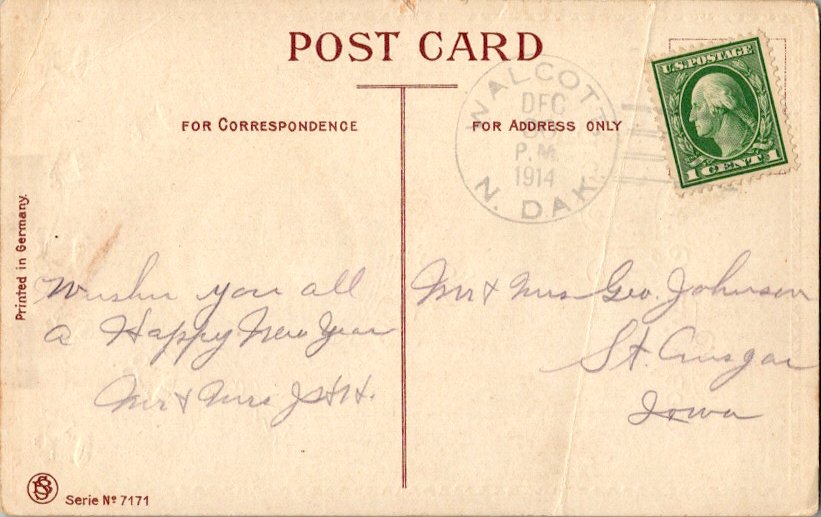 POST CARD
FOR CORRESPONDENCE
FOR ADDRESS ONLY
WALCOTT
DEC
P.M.
1914
N. DAK.
U.S. POSTAGE
1 CENT 1
Printed in Germany.
Wishn you all
a Happy New Year
Mr & Mrs
Mr & Mrs Geo. Johnson
St. Ansgar
Iowa
Serie Nº 7171